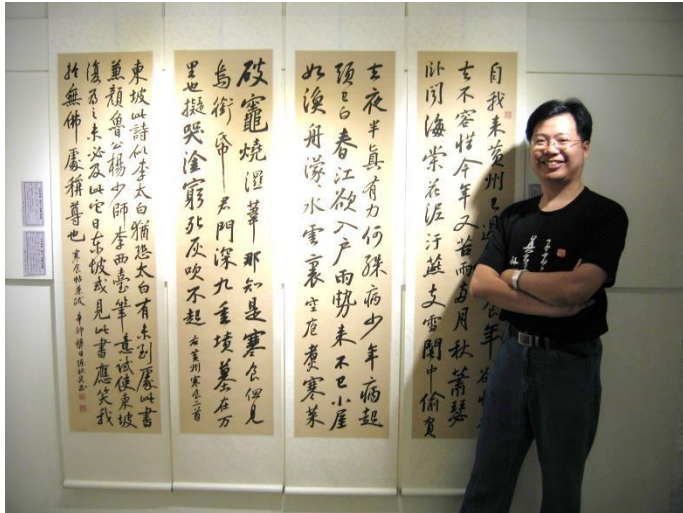 自我来黄州已過食年欲
去不容惜今年又苦雨兩月秋蕭瑟
卧聞海棠花泥汙燕支雪闇中偷負
去夜半真有力何殊病少年病起
頭已白春江欲入户雨勢来不已小屋
如漁舟濛々水雲裏空庖煮寒菜
破竈燒濕葦那知是寒食但見
烏銜帋君門深九重墳墓在万
里也擬哭塗窮死灰吹不起 右黄州寒食二首
東坡此詩似李太白猶恐太白有未到處此書
兼顏魯公楊少師李西臺筆意試使東坡
復為之未必及此它日東坡或見此書應笑我
於無佛處稱尊也 寒食帖